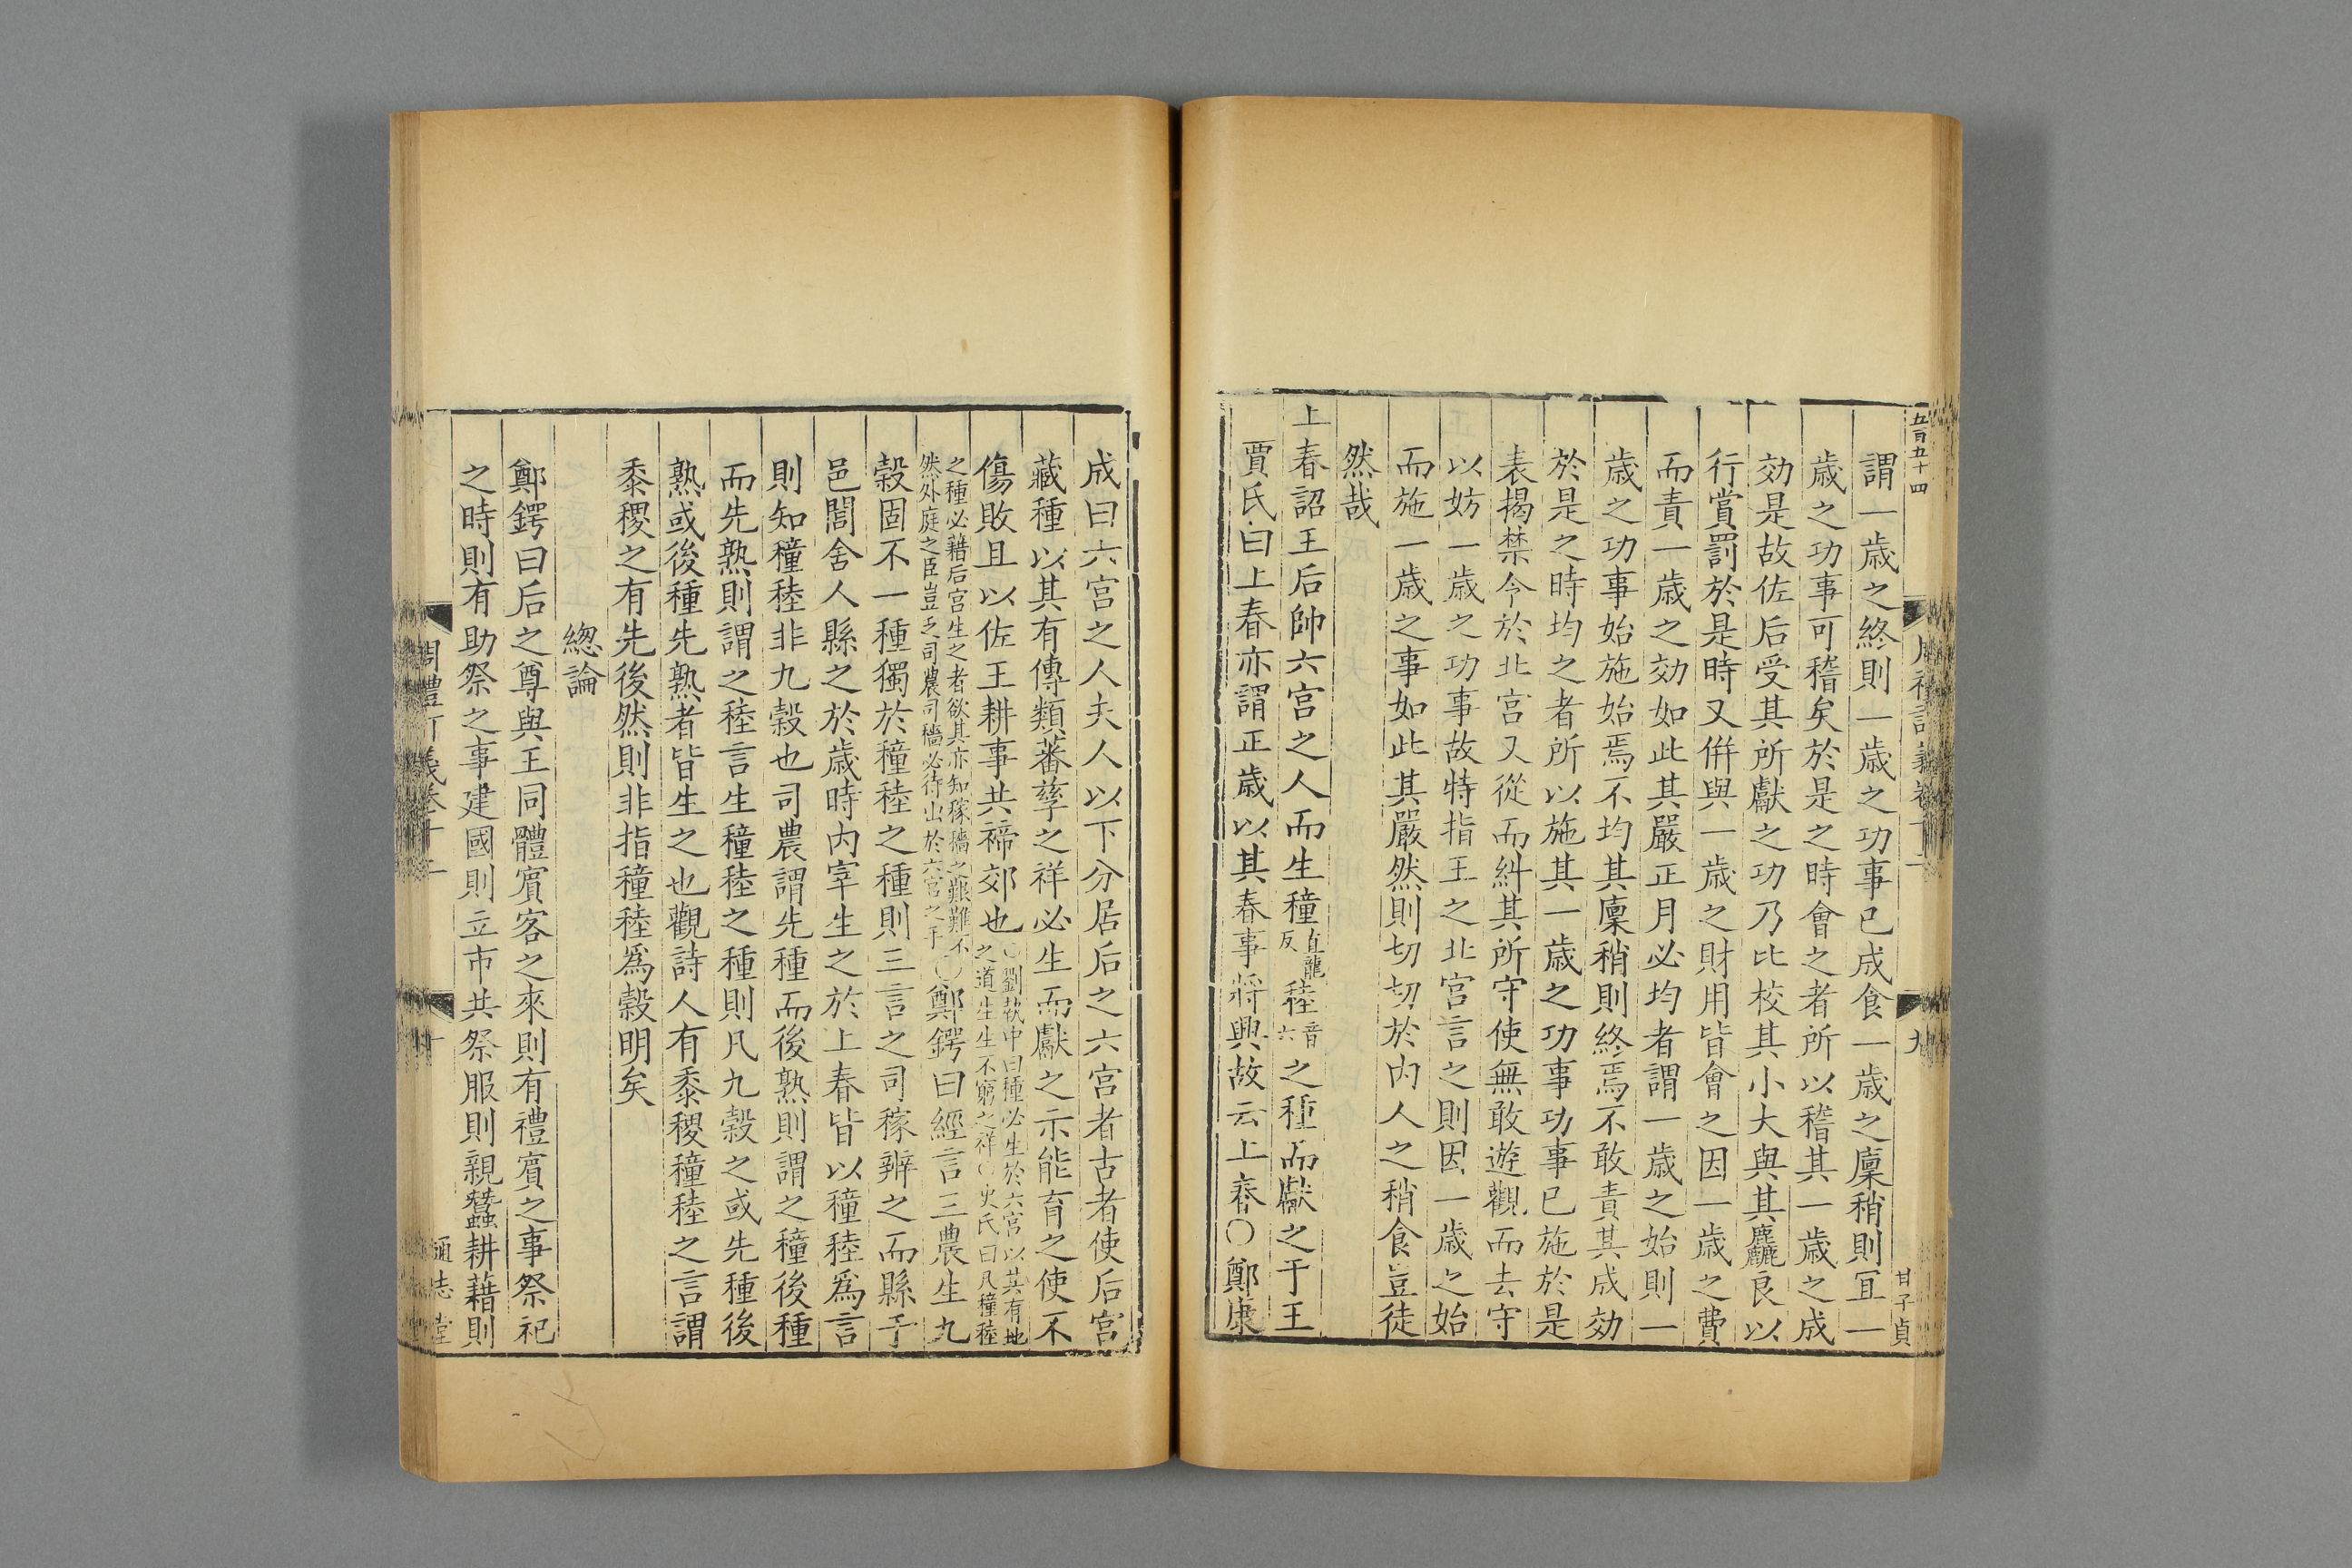 五百五十四
九
甘子貞
謂一歲之終則一歲之功事已成食一歲之廩稍則宜一
歲之功事可稽矣於是之時會之者所以稽其一歲之成
効是故佐后受其所獻之功乃比校其小大與其麤良以
行賞罰於是時又倂與一歲之財用皆會之因一歲之費
而責一歲之効如此其嚴正月必均者謂一歲之始則一
歲之功事始施始焉不均其廩稍則終焉不敢責其成効
於是之時均之者所以施其一歲之功事功事已施於是
表揭禁令於北宮又從而糾其所守使無敢遊觀而去守
以妨一歲之功事故特指王之北宮言之則因一歲之始
而施一歲之事如此其嚴然則切切於內人之稍食豈徒
然哉
上春詔王后帥六宮之人而生穜直龍反稑音六之種而獻之于王
賈氏曰上春亦謂正歲以其春事將興故云上春○鄭康
成曰六宮之人夫人以下分居后之六宮者古者使后宮
藏種以其有傳類蕃孳之祥必生而獻之示能育之使不
傷敗且以佐王耕事共禘郊也○劉執中曰種必生於六宮以其有地之道生生不窮之祥○史氏曰凡穜稑
之種必藉后宮生之者欲其亦知稼穡之艱難不然外庭之臣豈乏司農司穡必待出於六宮之手○鄭鍔曰經言三農生九
穀固不一種獨於穜稑之種則三言之司稼辨之而縣于
邑閭舍人縣之於歲時內宰生之於上春皆以穜稑爲言
則知穜稑非九穀也司農謂先種而後熟則謂之穜後種
而先熟則謂之稑言生穜稑之種則凡九穀之或先種後
熟或後種先熟者皆生之也觀詩人有黍稷穜稑之言謂
黍稷之有先後然則非指穜稑爲穀明矣
緫論
鄭鍔曰后之尊與王同體賓客之來則有禮賓之事祭祀
之時則有助祭之事建國則立市共祭服則親蠶耕藉則
周禮訂義卷十二
通志堂